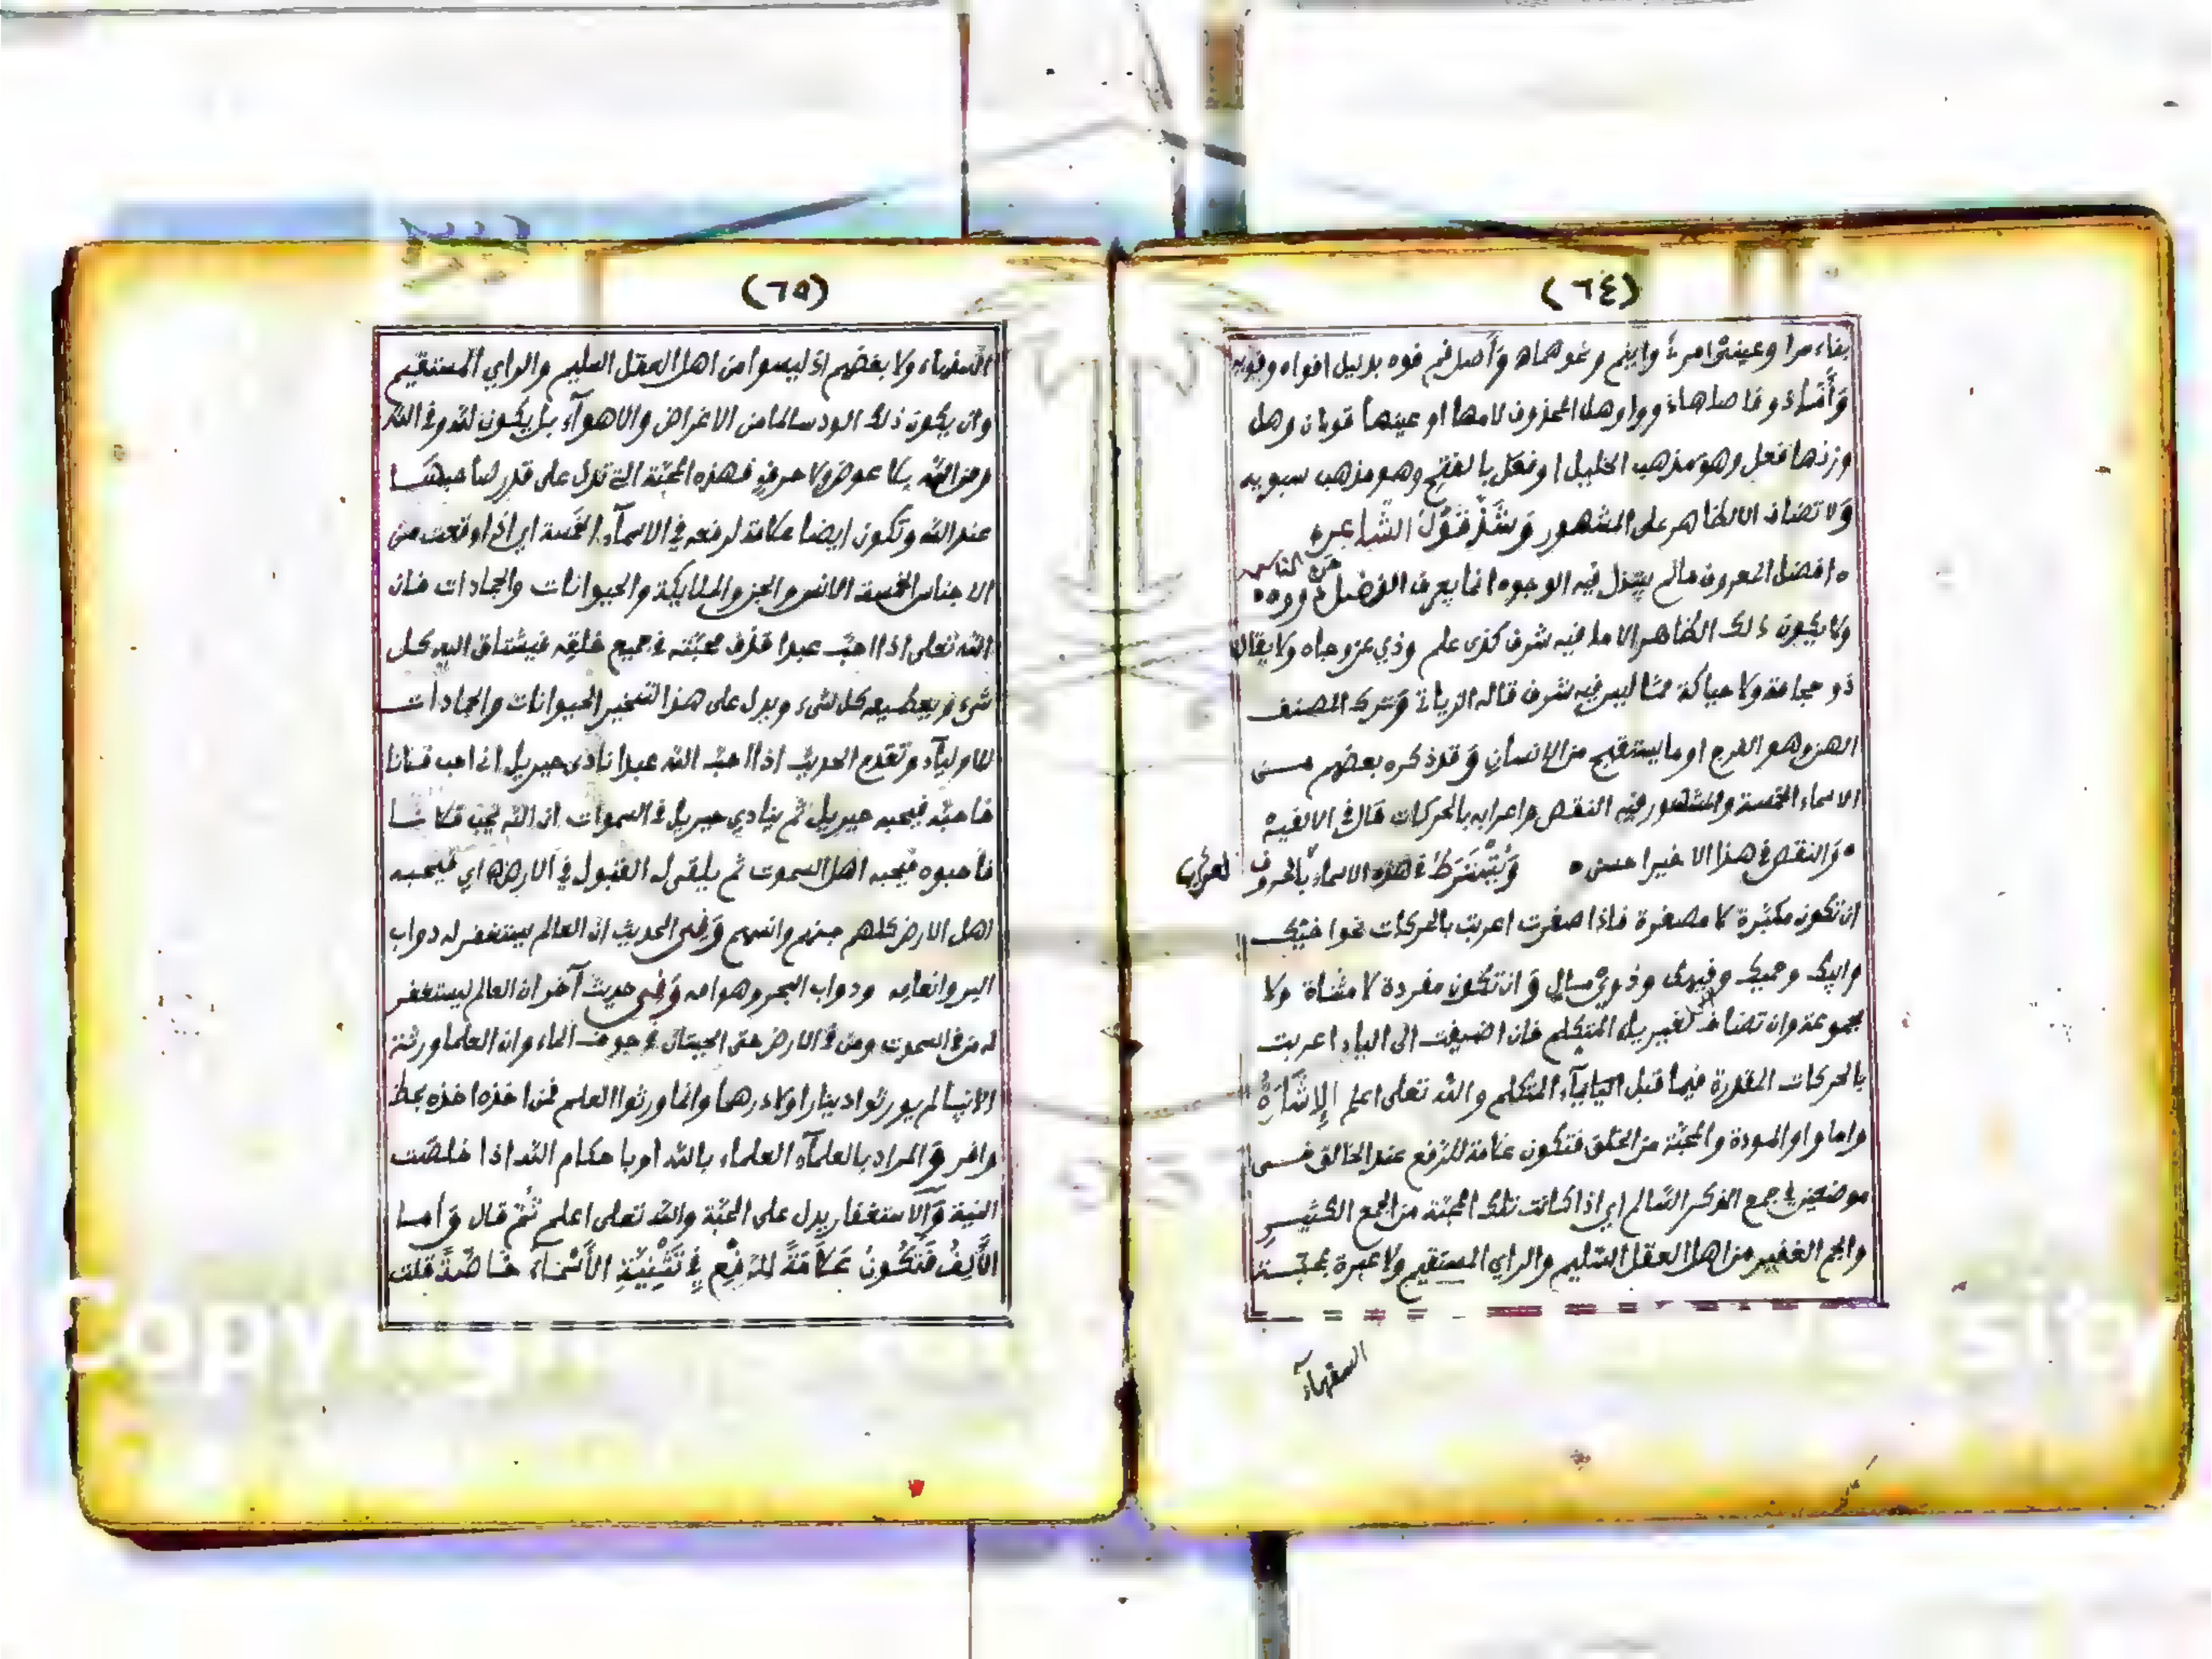 (٦٤)
وأصل فم فوه بدليل افواه
وهل المحذوف لامها او عينها قولان وهل
وزنها فعل وهو مذهب الخليل او فعل بالفتح وهو مذهب سبويه
ولا تضاف الا لظاهر على المشهور وشذ قول الشاعر
افضل المعروف مالم يبتذل فيه الوجوه انما يعرف الفضل من الناس ذووه
ولا يكون ذلك الظاهر الا ما فيه شرف كذى علم وذي عز وجاه ولا يقال
ذو حجامة ولا حياكة مما ليس فيه شرف قاله وترك المصنف
الهن وهو الفرج او ما يستقبح من الانسان وقد ذكره بعضهم من
الاسماء الخمسة والمشهور فيه النقص واعرابه بالحركات قال في الالفية
والنقص في هذا الاخير احسن ويشترط في هذه الاسماء بالحروف
ان تكون مكبّرة لا مصغرة فاذا صغرت اعربت بالحركات نحو اخيك
وذوي مال وان تكون مفردة لا مثناة ولا
مجموعة وان تضاف لغير ياء المتكلم فان اضيفت الى الياء اعربت
بالحركات المقدرة فيما قبل المتكلم والله تعلى اعلم الإشارة
واما واو المودة والمحبّة من الخلق فتكون علامة للرفع عند الخالق فى
موضعين في جمع الذكر السّالم اي اذا كانت تلك المحبّة من الجمع الكثير
والجم الغفير من اهل العقل السّليم والراي المستقيم ولا عبرة بمحبّة
السفهآء
(٦٥)
السفهاء ولا بغضهم اذ ليسوا من اهل العقل السليم والراي المستقيم
وان يكون ذلك الود سالما من الاغراض والاهوآء بل يكون لله وفي الله
ومن الله بلا عوض ولا حرف فهذه المحبّة التي تدل على قدر صاحبها
عند الله وتكون ايضا علامة لرفعه في الاسمآء الخمسة اي اذا وقعت من
الاجناس الخمسة الانس والجن والملايكة والحيوانات والجمادات فان
الله تعلى اذا احبّ عبدا قذف محبّته في جميع خلقه فيشتاق اليه كل
شىء ويطيعه كل شىء ويدل على هذا التسخير الحيوانات والجمادات
للاوليآء وتقدم الحديث اذا احبّ الله عبدا نادى جبريل اني احب فلانا
فاحبّه فيحبه جبريل ثم ينادي جبريل في السموات ان الله يحب فلانا
فأحبوه فيحبه اهل السموت ثم يلقى له القبول في الارض اي فيحبه
اهل الارض كلهم جنهم وانسهم وفي الحديث ان العالم يستغفر له دواب
البر وانعامه ودواب البحر وهوامه وفي حديث آخر ان العالم ليستغفر
له من في السموت ومن في الارض حتى الحيتان في جوف الماء وان العلما ورثة
الانبيا لم يورثوا دينارا ولا درهما وانما ورثوا العلم فمن اخذه اخذه بحظ
وافر والمراد بالعلمآء العلماء بالله او باحكام الله اذا خلصت
النية والاستغفار يدل على المحبّة والله تعلى اعلم ثم قال وأما
الألف فتكون علامة للرفع في تثنية الأسماء خاصّة قلت